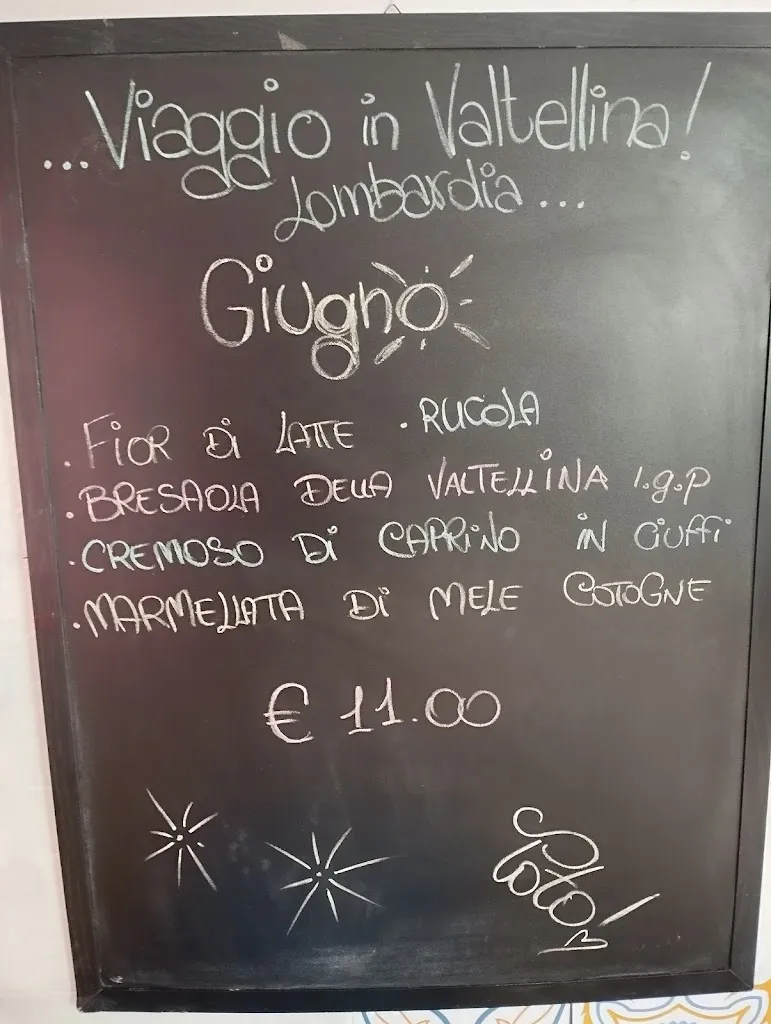 ...Viaggio in Valtellina!
Lombardia...
Giugno
. FIOR Di LATTE . RUCOLA
. BRESAOLA DELLA VALTELLiNA I.g.p
. CREMOSO Di CAPRiNO iN CiUFFi
. MARMELLATA Di MELE COTOGNE
€ 11.00